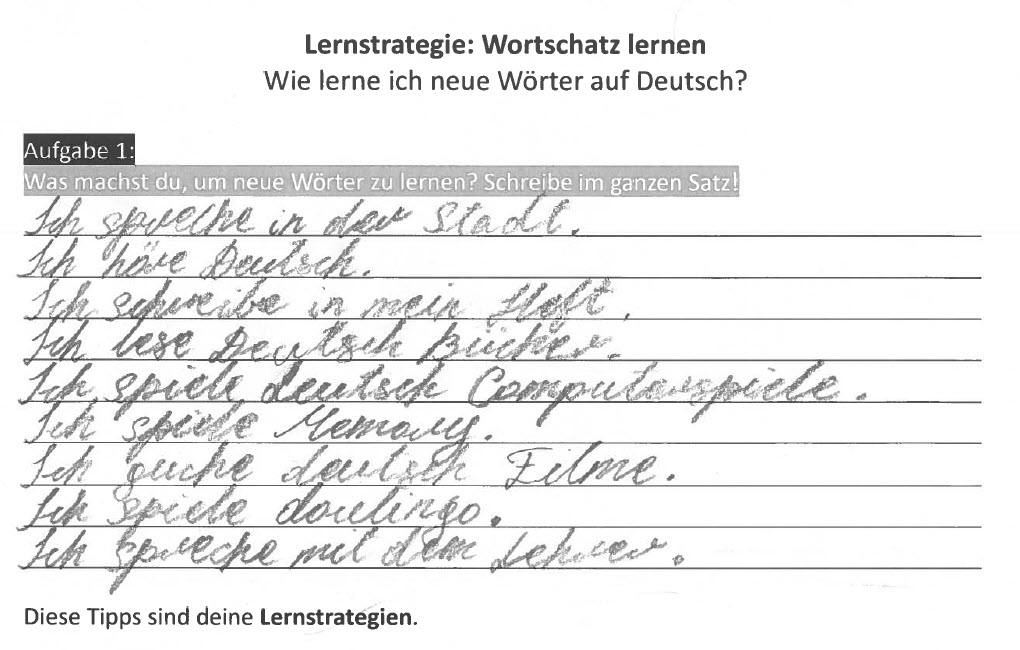 Lernstrategie: Wortschatz lernen
Wie lerne ich neue Wörter auf Deutsch?
Aufgabe 1:
Was machst du, um neue Wörter zu lernen? Schreibe im ganzen Satz!
Ich spreche in der Stadt.
Ich höre Deutsch.
Ich schreibe in mein Heft.
Ich lese Deutsch Bücher.
Ich spiele deutsch Computerspiele.
Ich spiele Memory.
Ich suche deutsch Filme.
Ich spiele doulingo.
Ich spreche mit dem Lehrer.
Diese Tipps sind deine Lernstrategien.